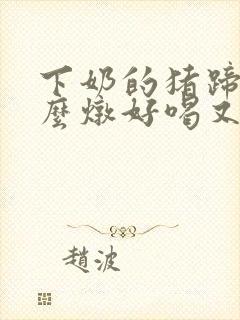 下奶的猪蹄
麼燉好喝又
趙波